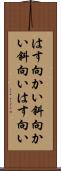 はす向かい斜向か
い斜向いはす向い